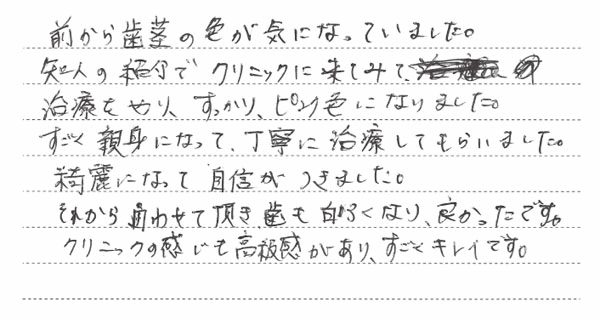 前から歯茎の色が気になっていました。
知人の紹介でクリニックに来てみて、
治療をやり、すっかり、ピンク色になりました。
すごく親身になって、丁寧に治療してもらいました。
綺麗になって自信がつきました。
それから  わせて頂き歯も白くなり、良かったです。
クリニックの感じも高級感があり、すごくキレイです。